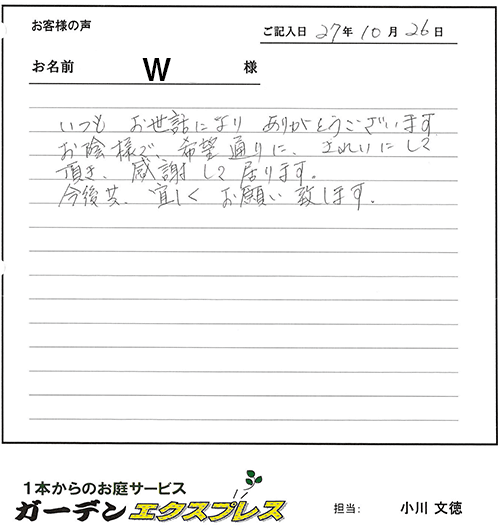 お客様の声
ご記入日 27年 10月 26日
お名前 W 様
いつも お世話になり ありがとうございます
お陰様で、希望通りに、きれいにして
頂き、感謝して居ります。
今後共、宜しく お願い致します.
1本からのお庭サービス
ガーデンエクスプレス
担当: 小川 文徳